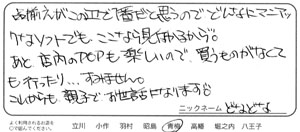 品揃えがこの辺で1番だと思うので どんなにマニアッ
クなソフトでも、ここなら見つかるから。
あと店内のPOPも楽しいので、買うものがなくて
も行ったり…すみません。
これからも親子でお世話になります
ニックネーム どなどな
よく利用されるお店を○で囲んでください。 立川 小作 羽村 昭島 青梅 高幡 堀之内 八王子